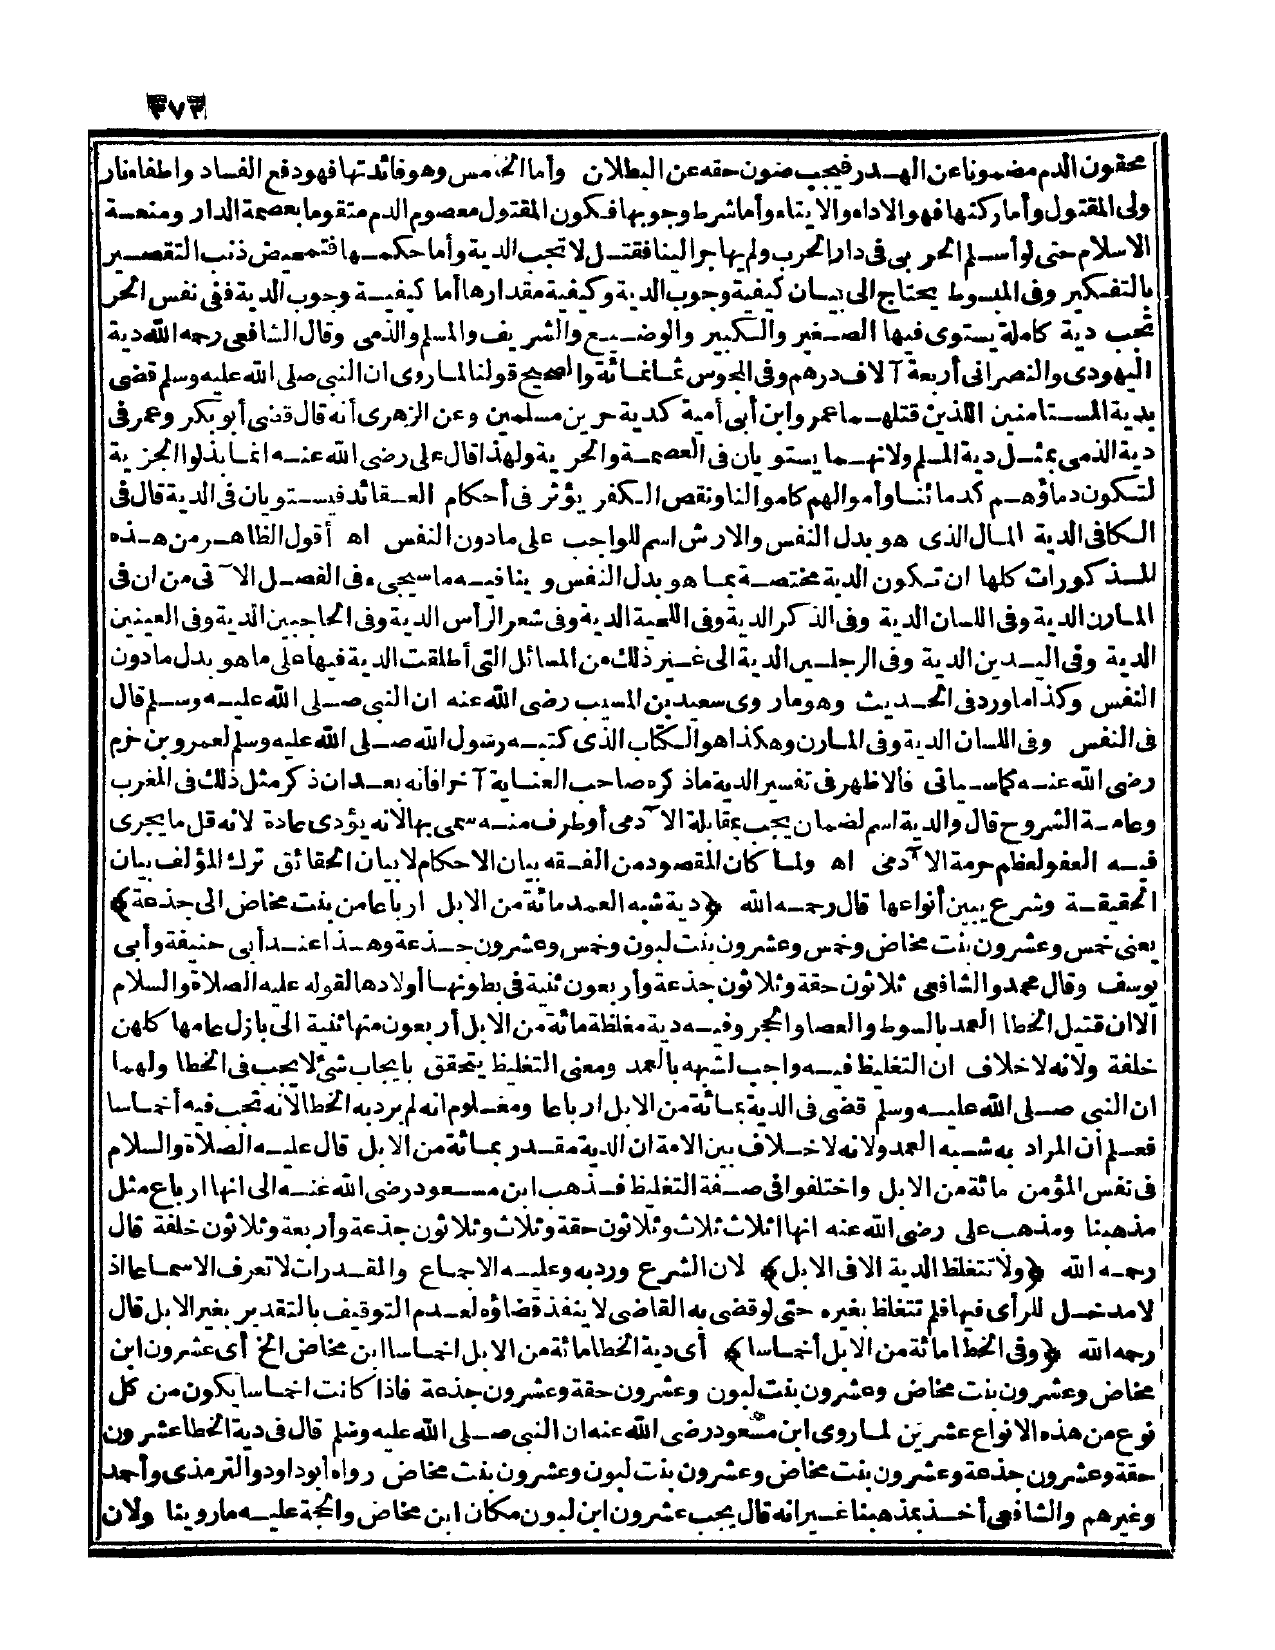 ٣٧٣
محقون الدم مضمونا عن الهدر فيجب ضون حقه عن البطلان وأما الخامس وهو فائدتها فهو دفع الفساد واطفاء نار
ولى المقتول وأما ركنها فهو الاداء والايتاء وأما شرط وجوبها فكون المقتول معصوم الدم متقوما بعصمة الدار ومنعة
الاسلام حتى لو أسلم الحربى فى دار الحرب ولم يهاجر الينا فقتل لا تجب الدية وأما حكمها فتمحيض ذنب التقصير
بالتفكير وفى المبسوط يحتاج الى بيان كيفية وجوب الدية وكيفية مقدارها أما كيفية وجوب الدية ففى نفس الحر
تجب دية كاملة يستوى فيها الصغير والكبير والوضيع والشريف والمسلم والذمى وقال الشافعى رحمه الله دية
اليهودى والنصرانى أربعة آلاف درهم وفى المجوس ثمانمائة والصحيح قولنا لما روى ان النبى صلى الله عليه وسلم قضى
بدية المستامنين اللذين قتلهما عمرو ابن أبى أمية كدية حرين مسلمين وعن الزهرى أنه قال قضى أبو بكر وعمر فى
دية الذمى بمثل دية المسلم ولانهما يستويان فى العصمة والحرية ولهذا قال على رضى الله عنه انما بذلوا الجزية
لتكون دماؤهم كدمائنا وأموالهم كاموالنا ونقص الكفر يؤثر فى أحكام العقائد فيستويان فى الدية قال فى
الكافى الدية المال الذى هو بدل النفس والارش اسم للواجب على ما دون النفس اه أقول الظاهر من هذه
المذكورات كلها ان تكون الدية مختصة بما هو بدل النفس وينافيه ما سيجىء فى الفصل الآتى من ان فى
المارن الدية وفى اللسان الدية وفى الذكر الدية وفى اللحية الدية وفى شعر الرأس الدية وفى الحاجبين الدية وفى العينين
الدية وفى اليدين الدية وفى الرجلين الدية الى غير ذلك من المسائل التى أطلقت الدية فيها على ما هو بدل ما دون
النفس وكذا ما ورد فى الحديث وهو ما روى سعيد بن المسيب رضى الله عنه ان النبى صلى الله عليه وسلم قال
فى النفس وفى اللسان الدية وفى المارن وهكذا هو الكتاب الذى كتبه رسول الله صلى الله عليه وسلم لعمرو بن حزم
رضى الله عنه كما سياتى فالاظهر فى تفسير الدية ما ذكره صاحب العناية آخرا فانه بعد ان ذكر مثل ذلك فى المغرب
وعامة الشروح قال والدية اسم لضمان يجب بمقابلة الآدمى أو طرف منه سمى بها لانه يؤدى عادة لانه قل ما يجرى
فيه العفو لعظم حرمة الآدمى اه ولما كان المقصود من الفقه بيان الاحكام لا بيان الحقائق ترك المؤلف بيان
الحقيقة وشرع يبين أنواعها قال رحمه الله ﴿دية شبه العمد مائة من الابل ارباعا من بنت مخاض الى جذعة﴾
يعنى خمس وعشرون بنت مخاض وخمس وعشرون بنت لبون وخمس وعشرون جذعة وهذا عند أبى حنيفة وأبى
يوسف وقال محمد والشافعى ثلاثون حقة وثلاثون جذعة وأربعون ثنية فى بطونها أولادها لقوله عليه الصلاة والسلام
الا ان قتيل الخطا العمد بالسوط والعصا والحجر وفيه دية مغلظة مائة من الابل أربعون منها ثنية الى بازل عامها كلهن
خلفة ولانه لا خلاف ان التغليظ فيه واجب لشبهه بالعمد ومعنى التغليظ يتحقق بايجاب شئ لا يجب فى الخطا ولهما
ان النبى صلى الله عليه وسلم قضى فى الدية بمائة من الابل ارباعا ومعلوم انه لم يرد به الخطا لانه تجب فيه أخماسا
فعلم أن المراد به شبه العمد ولانه لا خلاف بين الامة ان الدية مقدر بمائة من الابل قال عليه الصلاة والسلام
فى نفس المؤمن مائة من الابل واختلفوا فى صفة التغليظ فذهب ابن مسعود رضى الله عنه الى انها ارباع مثل
مذهبنا ومذهب على رضى الله عنه انها اثلاث ثلاث وثلاثون حقة وثلاث وثلاثون جذعة وأربعة وثلاثون خلفة قال
رحمه الله ﴿ولا تتغلظ الدية الا فى الابل﴾ لان الشرع ورد به وعليه الاجماع والمقدرات لا تعرف الا سماعا اذ
لا مدخل للرأى فيها فلم تتغلظ بغيره حتى لو قضى به القاضى لا ينفذ قضاؤه لعدم التوقيف بالتقدير بغير الابل قال
رحمه الله ﴿وفى الخطا مائة من الابل أخماسا﴾ أى دية الخطا مائة من الابل اخماسا ابن مخاض الخ أى عشرون ابن
مخاض وعشرون بنت مخاض وعشرون بنت لبون وعشرون حقة وعشرون جذعة فاذا كانت اخماسا يكون من كل
نوع من هذه الانواع عشرين لما روى ابن مسعود رضى الله عنه ان النبى صلى الله عليه وسلم قال فى دية الخطا عشرون
حقة وعشرون جذعة وعشرون بنت مخاض وعشرون بنت لبون وعشرون بنت مخاض رواه أبو داود والترمذى وأحمد
وغيرهم والشافعى أخذ بمذهبنا غير انه قال يجب عشرون ابن لبون مكان ابن مخاض والحجة عليه ما روينا ولان